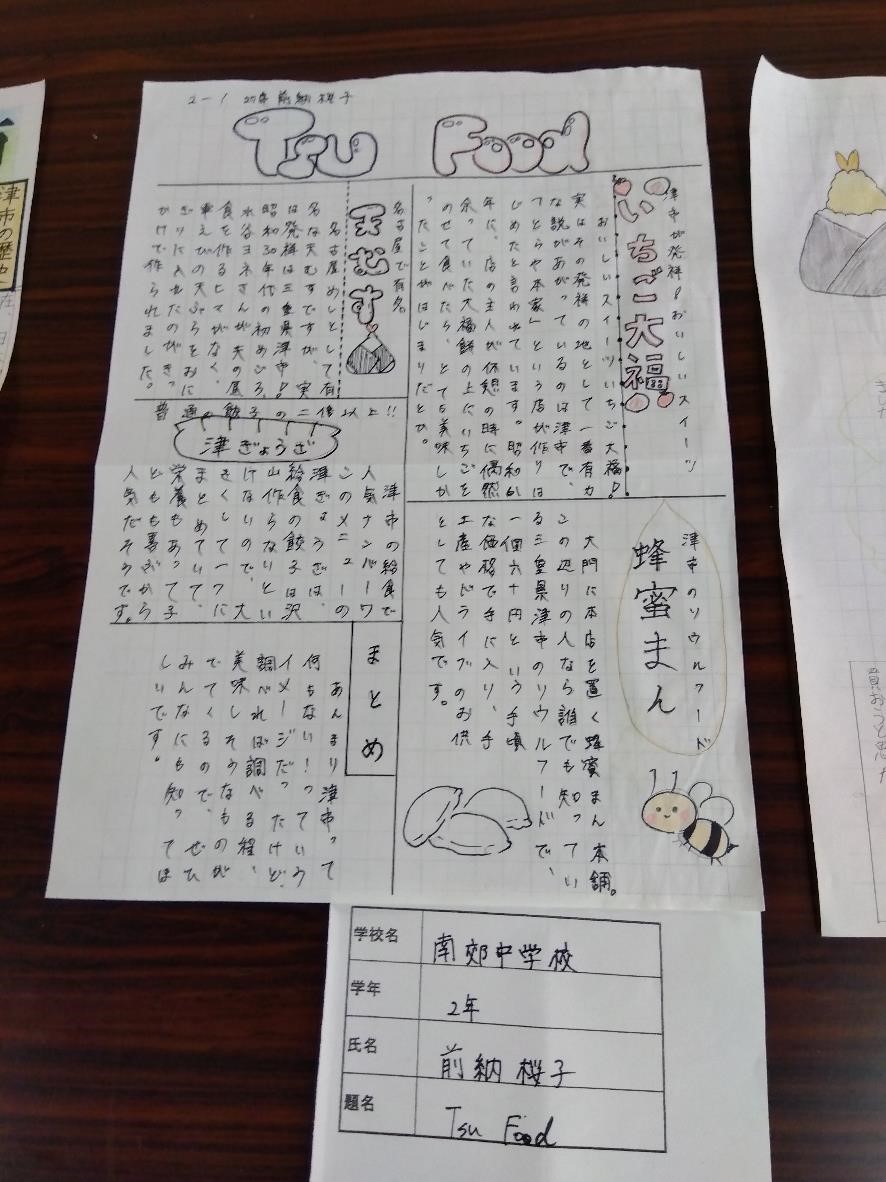 2-1 27番 前納 桜子
Tsu Food
津市が発祥!おいしいスイーツ
いちご大福
おいしいスイーツいちご大福!
実はその発祥の地として一番有力
な説があがっているのは津市で、
「とらや本家」という店が作りは
じめたと言われています。昭和
年に、店の主人が休憩の時に偶然
余っていた大福餅の上にいちごを
のせて食べたら、とても美味しか
ったことがはじまりだとか。
名古屋で有名。
天むす
名古屋めしとして有
名な天むすですが、実
は発祥は三重県津市!
昭和30年代の初めごろ、
水谷ヨネさんが、夫の昼
食を作るヒマがなく、
車えびの天ぷらをおに
ぎりに入れたのがきっ
かけで作られました。
普通の餃子の二倍以上!!
津ぎょうざ
津市の給食で
人気ナンバーワ
ンのメニューの
津ぎょうざは、
給食の餃子は沢
山作らないとい
けないので、大
きくして一つに
まとめていて、
栄養もあって子
どもも喜ぶから
人気だそうです。
津市のソウルフード
蜂蜜まん
大門に本店を置く蜂蜜まん本舗。
この辺りの人なら誰でも知ってい
る三重県津市のソウルフードで、
一個六十円という手頃
な価格で手に入り、手
土産やドライブのお供
としても人気です。
まとめ
あんまり津市って
何もない!っていう
イメージだったけど、
調べれば調べる程、
美味しそうなものが
でてくるので、ぜひ
みんなにも知ってほ
しいです。
学校名 南郊中学校
学年 2年
氏名 前納 桜子
題名 Tsu Food
津市の歴史
買おうと思った